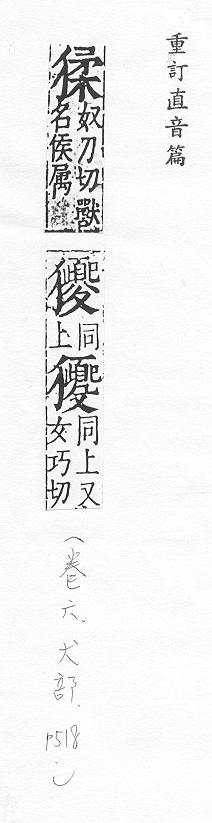 重訂直音篇
猱奴刀切獸
名侯属
獿同
上
同上又
女巧切
(卷六.犬部.p518)